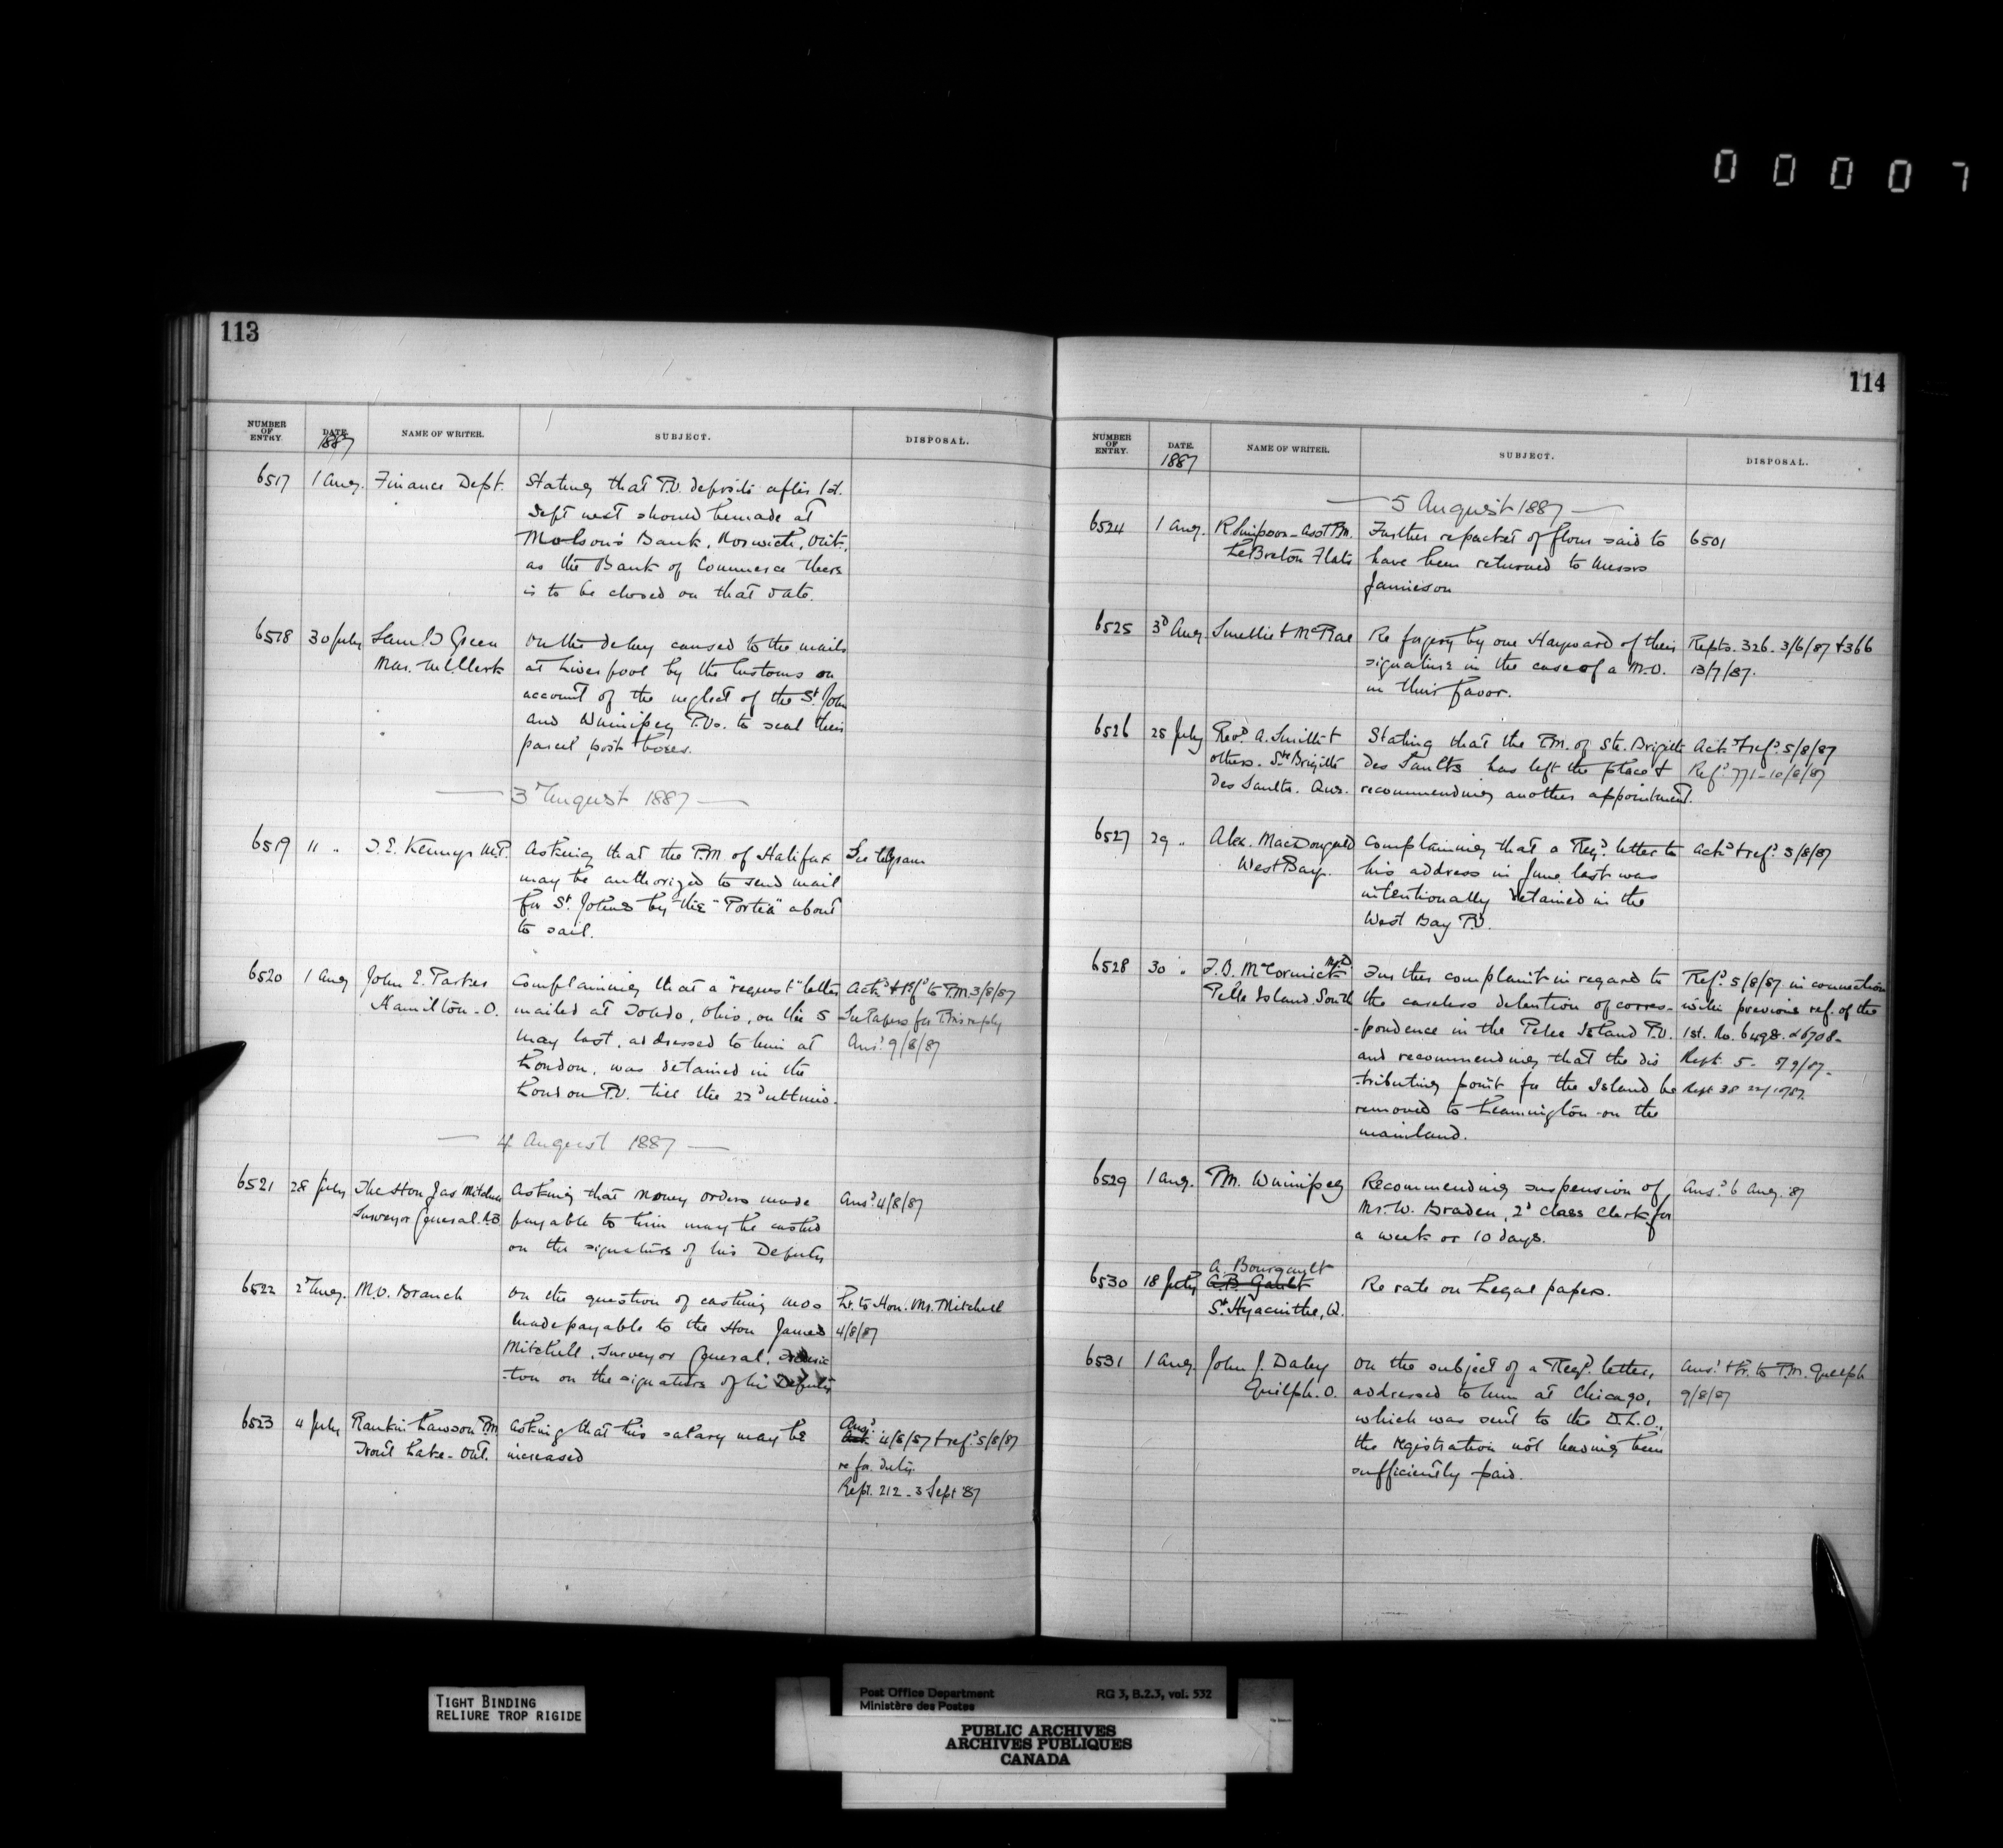 00007
113
NUMBER OF ENTRY.
DATE. 1887
NAME OF WRITER.
SUBJECT.
DISPOSAL.
6517 1 Aug. Finance Dept. Stating that P.O. deposits after 1st.
Sept next should be made at
Molson's Bank, Norwich, Ont.,
as the Bank of Commerce there
is to be closed on that date.
6518 30 July Saml. D Green On the delay caused to the mails
Mar. Ml. Clerk at Liverpool by the Customs on
account of the neglect of the St. John
and Winnipeg P.Os. to seal their
parcel post boxes.
3d August 1887
6519 11 " T. E. Kenny M.P. Asking that the P.M. of Halifax See telegram
may be authorized to send mail
for St. Johns by the "Portia" about
to sail.
6520 1 Aug John E. Parker Complaining that a "request" letter Ackd. & refd. to P.M. 3/8/87
Hamilton - O. mailed at Toledo, Ohio, on the 5 See Papers for P.M's reply
May last, addressed to him at Ansd. 9/8/87
London, was detained in the
London P.O. till the 22d ultimo.
4 August 1887
6521 28 July The Hon Jas Mitchell Asking that money orders made Ansd. 4/8/87
Surveyor General. N.B. payable to him may be cashed
on the signature of his Deputy
6522 2d Aug. M.O. Branch On the question of cashing M.Os Lr. to Hon. Mr. Mitchell
made payable to the Hon James 4/8/87
Mitchell, Surveyor General, Frederic
-ton on the signature of his Deputy
6523 4 July Rankin Lawson P.M. Asking that his salary may be Ansd. 4/8/87 & refd. 5/8/87
Trout Lake - Ont. increased re for. duty.
Rept. 212 - 3 Sept 87
114
NUMBER OF ENTRY.
DATE. 1887
NAME OF WRITER.
SUBJECT.
DISPOSAL.
5 August 1887
6524 1 Aug. R Simpson - Asst P.M. Further re packet of flour said to 6501
LeBreton Flats have been returned to Messrs
Jamieson
6525 3d Aug. Smellie & McRae Re forgery by one Hayward of their Repts. 326. 3/6/87 & 366
signature in the case of a M.O. 13/7/87.
in their favor.
6526 25 July Revd. A. Smith & Stating that the P.M. of Ste. Brigitte Ackd. & refd. 5/8/87
others. Ste Brigitte Des Saults has left the place & Refd. 771 - 10/8/87
Des Saults. Que. recommending another appointment.
6527 29 " Alex. MacDougald Complaining that a Regd. letter to Ackd. & refd. 5/8/87
West Bay. his address in June last was
intentionally detained in the
West Bay P.O.
6528 30 " F.O. McCormick M.D. Further complaint in regard to Refd. 5/8/87 in connection
Pelee Island South the careless detention of corres- with previous ref. of the
-pondence in the Pelee Island P.O. 1st. No. 6498. & 6708 -
and recommending that the dis Rept. 5 - 5/9/87 -
-tributing point for the Island be Rept 38 22/10/87.
removed to Leamington on the
mainland.
6529 1 Aug. P.M. Winnipeg Recommending suspension of Ansd. 6 Aug. '87
Mr. W. Braden, 2d class Clerk for
a week or 10 days.
A. Bourgault
6530 18 July G.B. Gault Re rate on Legal papers.
St. Hyacinthe, Q.
6531 1 Aug. John J. Daley On the subject of a Regd. letter, Ansd. & fr. to P.M. Guelph
Guelph. O. addressed to him at Chicago, 9/8/87
which was sent to the D.L.O.,
the registration not having been
sufficiently paid.
TIGHT BINDING
RELIURE TROP RIGIDE
Post Office Department RG 3, B.2.3, vol. 532
Ministère des Postes
PUBLIC ARCHIVES
ARCHIVES PUBLIQUES
CANADA